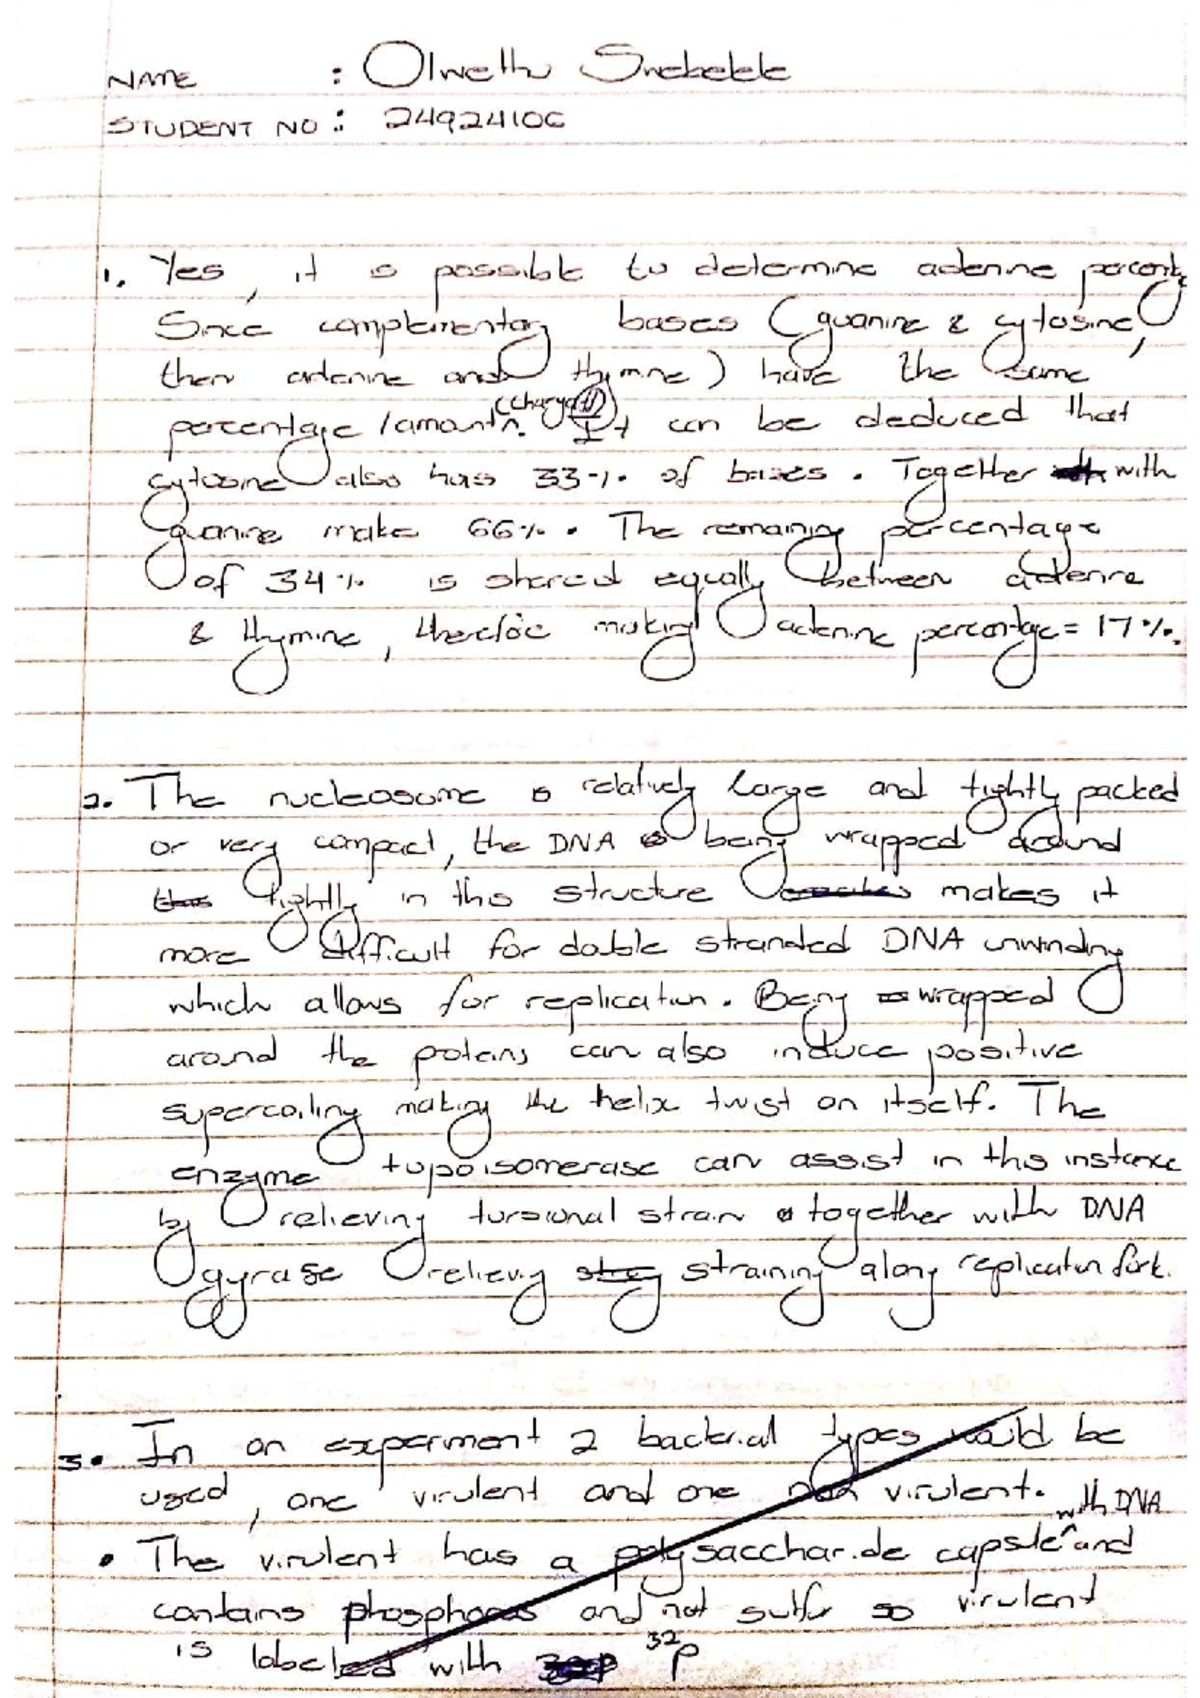 NAME : Olwethu
STUDENT NO : 2492410
1. Yes, it is possible to determine adenine
Since complementary bases (guanine & cytosine,
then adenine and thymine) have the same
percentage / amounts. It can be deduced that
cytosine also has 33% of bases. Together with
guanine make 66%. The remaining percentage
of 34% is shared equally between adenine
& thymine, therefore making adenine percentage = 17%.
2. The nucleosome is relatively large and tightly packed
or very compact, the DNA being wrapped around
tightly in this structure makes it
more difficult for double stranded DNA unwinding
which allows for replication. Being wrapped
around the proteins can also induce positive
supercoiling making the helix twist on itself. The
enzyme topoisomerase can assist in this instance
by relieving torsional strain together with DNA
gyrase relieving straining along replication fork.
3. In an experiment 2 bacterial types would be
used, one virulent and one non virulent.
with DNA
• The virulent has a polysaccharide capsule and
contains phosphorus and not sulfur so virulent
is labeled with 32P